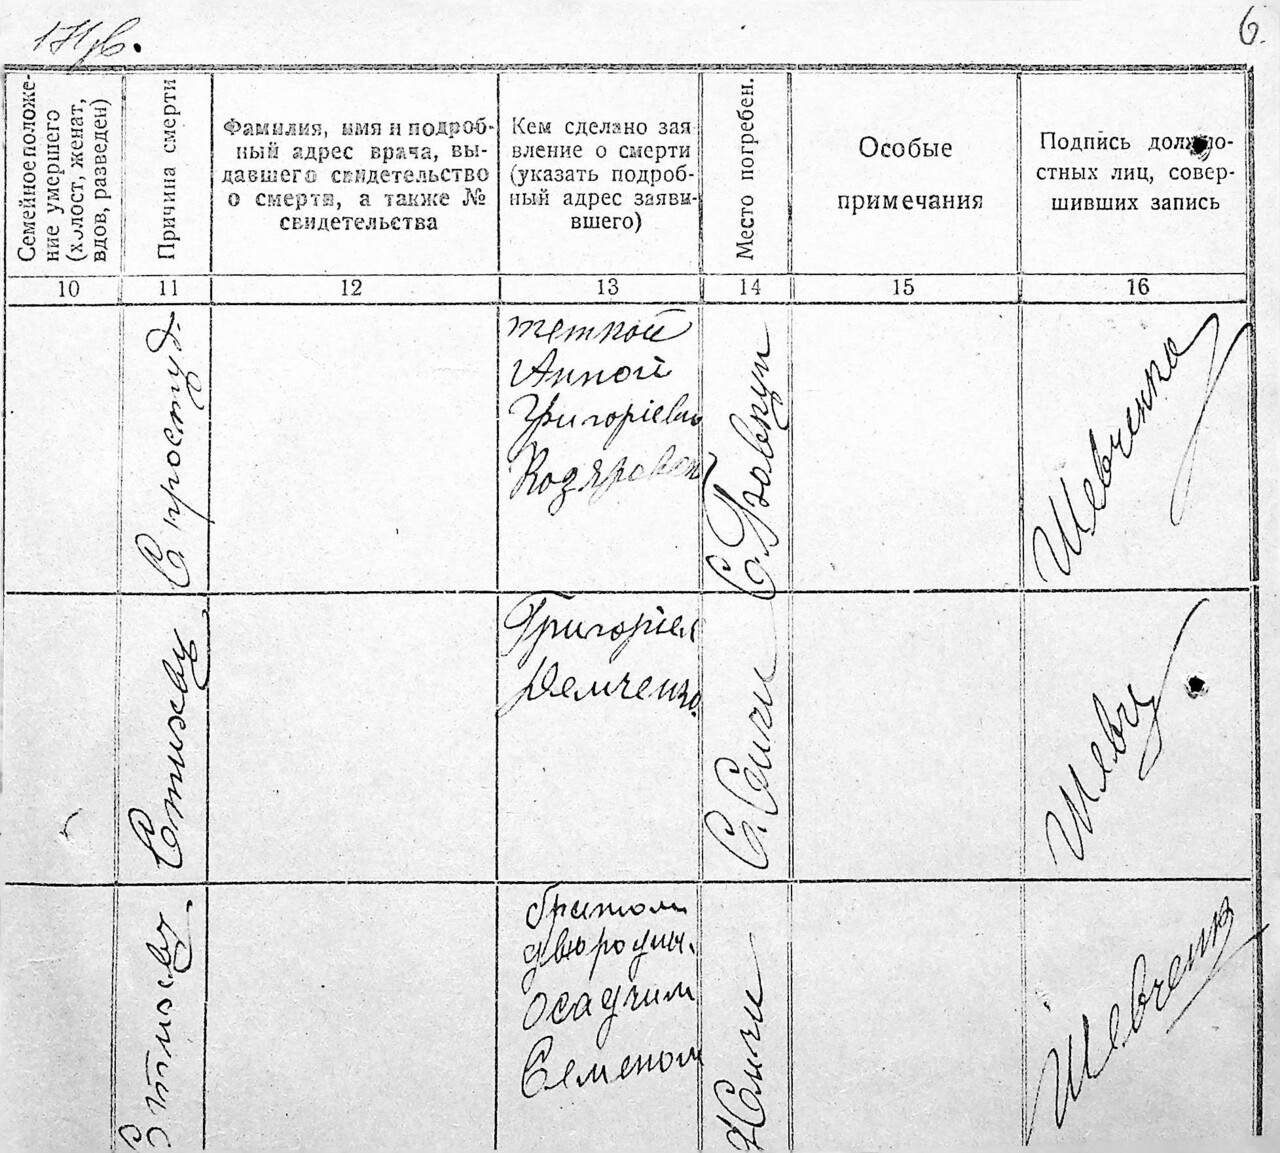 6.
Семейное положе-
ние умершего
(холост, женат,
вдов, разведен)
Причина смерти
Фамилия, имя и подроб-
ный адрес врача, вы-
давшего свидетельство
о смерти, а также №
свидетельства
Кем сделано зая
вление о смерти
(указать подроб-
ный адрес заяви-
вшего)
Место погребен.
Особые
примечания
Подпись должно-
стных лиц, совер-
шивших запись
10
11
12
13
14
15
16
С простуд.
теткой
Анной
Григоріевн
С.
Шевченко
Григоріем
Демченко.
С. Сичи
Шевч
братом
двюродны.
Осадчим
Семеном
Сичи
Шевченко